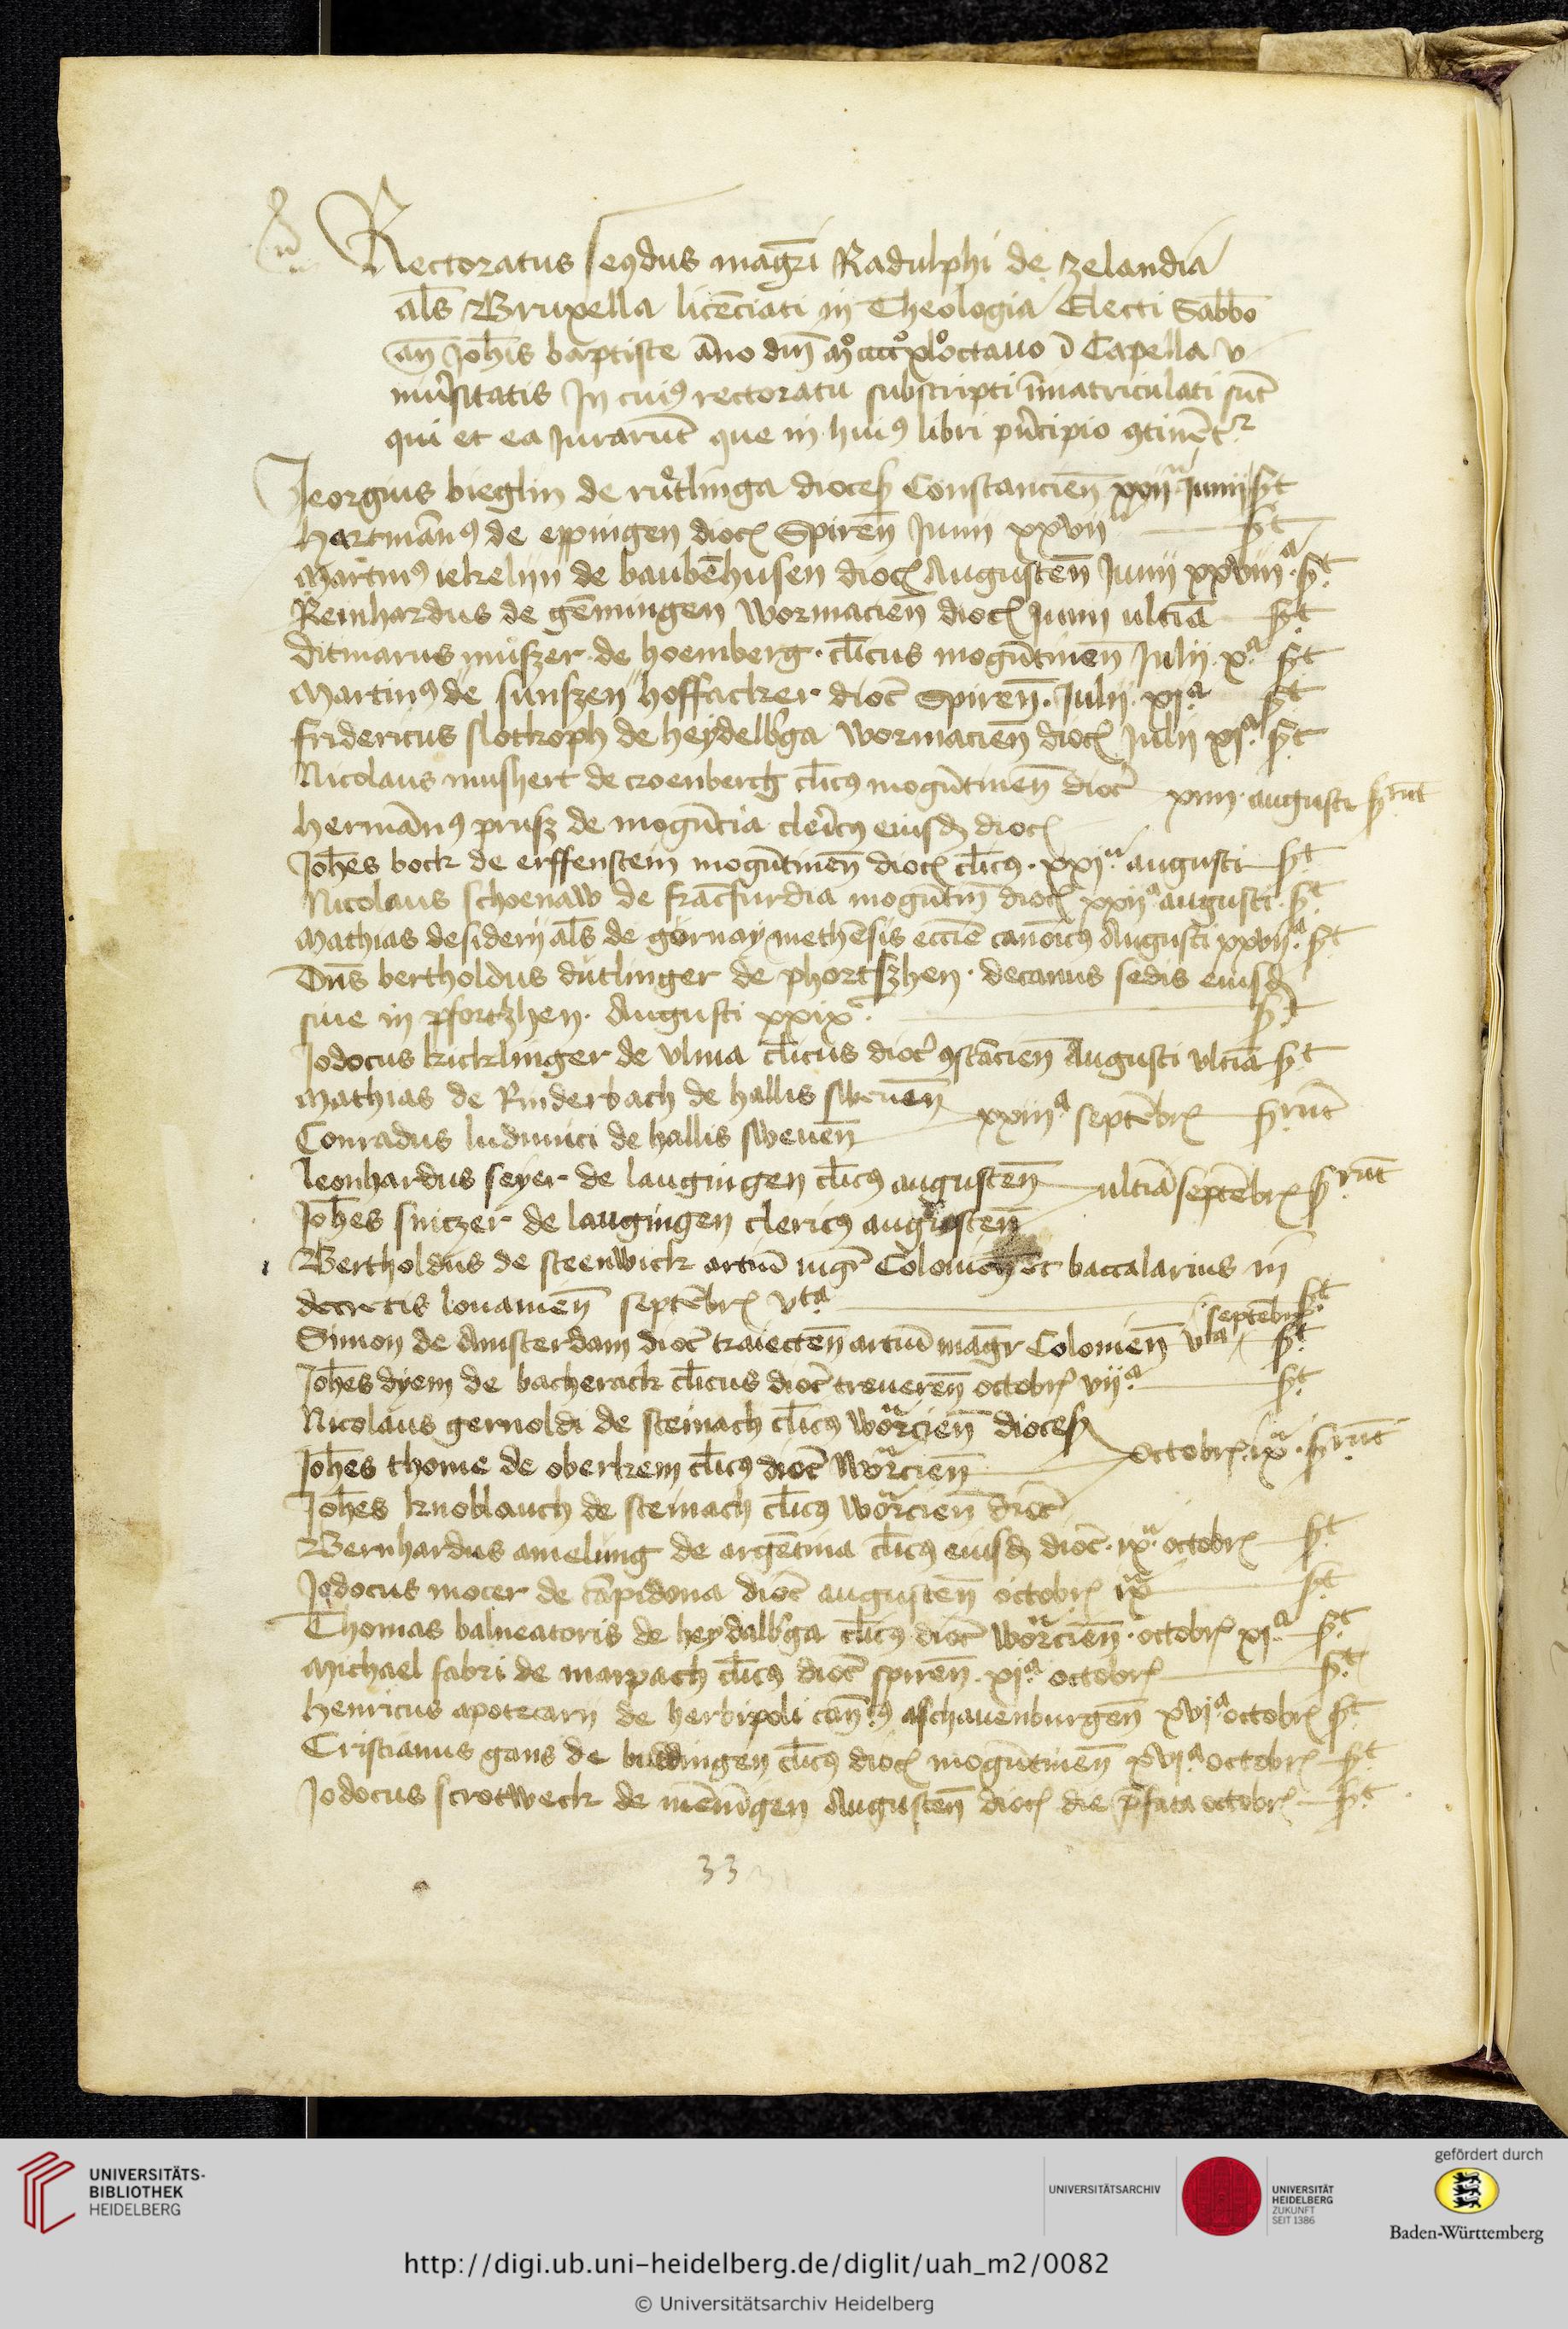 Rectoratus secundus magr̄i Radulphi de zelandia
als̄ Bruxella licēciati in Theologia Electi Sabbō
an̄ Joh̄is baptiste āno dm̄ mͦccccͦxlͦoctauo ī Capella v
niu̓sitatis In cuiꝯ rectoratu subscripti īmatriculati sūt
qui et ea Jurarūt que in huiꝯ libri pn̓cipio ꝯtinēt
Jeorgius bieglin de rutlinga dioces Constancien̄ xxiiᵃ Junii st
hartmānꝯ de eppingen dioc Spiren̄ Junii xxviiᵃ st
Martinꝯ iekelyn de baubēhusen dioc Augusten̄ Junii xxviiiᵃ st
Reinhardus de gēmingen wormacien̄ dioc Junii ultiā st
Ditmarus muszer de hoemberg clīcus mogūtinen̄ Julii xᵃ st
Martinꝯ de sunszen hoffacker dioc Spiren̄ Julii xiᵃ st
fridericus slotkoph de heydelbga wormacien̄ dioc Julii xiᵃ st
Nicolaus mushert de croenberch clīcꝯ mogūtinen̄ dioc xiiii augusti srūt
hermānꝯ prusz de mogūtia clericꝯ eiusd dioc
Joh̄es bock de erffenstein mogūtinen̄ dioc clīcꝯ xxiᵃ augusti st
Nicolaus schoenaw de frācfurdia mogūtin̄ dioc xxiiᵃ augusti st
Mathias desiderii als̄ de gornay methēsis eccīe canōicꝯ Augusti xxviiᵃ st
Dn̄s bertholdus dutlinger de phortszhen decanus sedis eiusd
siue in pfortzhen Augusti xxixᵃ st
Jodocus kicklinger de vlma clīcus dioc ꝯstācien̄ Augusti vltiā st
Mathias de Rinderbach de hallis sweuen̄ xxiiiᵃ septēbr srūt
Conradus ludwici de hallis sweuen̄
leonhardus seyer de laugingen clīcꝯ augusten̄ ultiā septēbr srūt
Joh̄es sniczer de laugingen clericꝯ augusten̄
Bertholdus de steenwick artiū mgr̄ Colonien̄ et baccalarius in
decretis louanien̄ septēbr vta st
Simon de Amsterdam dioc traiecten̄ artiū magr̄ Colonien̄ vta septēbr st
Joh̄es dyem de bacherack clīcus dioc treueren̄ octobr viiᵃ st
Nicolaus gernoldi de steinach clīcꝯ worᵃcien̄ dioces
Joh̄es thome de oberkem clīcꝯ dioc worᵃcien̄ octobr ixᵃ srūt
Joh̄es knoblauch de steinach clīcꝯ worᵃcien̄ dioc
Bernhardus amelung de argētina clīcꝯ eiusd dioc ixᵃ octobr st
Jodocus mocer de cāpidona dioc augusten̄ octobr ixᵃ st
Thomas balneatoris de heydalbga clīcꝯ dioc worᵃcien̄ octobr xiᵃ st
Michael fabri de marpach clīcꝯ dioc spiren̄ xiᵃ octobr st
henricus apotecarii de herbipoli can̄cꝯ aschauenburgen̄ xviᵃ octobr st
Cristianus gans de buddingen clīcꝯ dioc mogūtinen̄ xviᵃ octobr st
Jodocus scrotweck de mēnīgen Augusten̄ dioc die p̄fata octobr st
33
UNIVERSITÄTS-
BIBLIOTHEK
HEIDELBERG
UNIVERSITÄTSARCHIV
UNIVERSITÄT
HEIDELBERG
ZUKUNFT
SEIT 1386
gefördert durch
Baden-Württemberg
http://digi.ub.uni-heidelberg.de/diglit/uah_m2/0082
© Universitätsarchiv Heidelberg